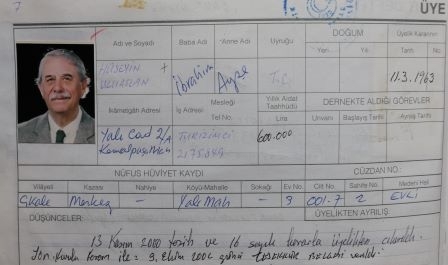 7
ÜYE
Adı ve Soyadı Baba Adı Anne Adı Uyruğu DOĞUM Üyelik Kararının
Yeri Yılı Tarih No
HÜSEYİN
ULUASLAN İbrahim Ayşe T.C. 11.3.1963
İkâmetgâh Adresi İş Adresi Mesleği Yıllık Aidat Taahhüdü DERNEKTE ALDIĞI GÖREVLER
Tel No. Lira Unvanı Başlayış Tarihi Ayrılış Tarihi
Yalı Cad 2/A 600.000
NÜFUS HÜVİYET KAYDI CÜZDAN NO.:
Vilâyeti Kazası Nahiye Köyü-Mahalle Sokağı Ev No Cilt No Sahife No Medeni Hali
Ç.Kale Merkez — Yalı Mah — 9 001-7 2 EVLİ
DÜŞÜNCELER: ÜYELİKTEN AYRILIŞ:
13 Kasım 2000 tarih ve 16 sayılı kararla üyelikten
Yön. Kurulu ile 9. Ekim 2006 günü TEŞEKKÜR BELGESİ verildi.